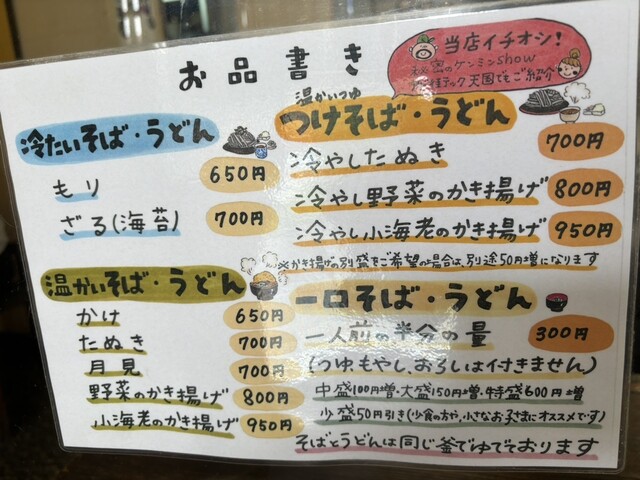 お品書き
当店イチオシ!
秘密のケンミンshow
天国でもご紹介
冷たいそば・うどん
もり 650円
ざる(海苔) 700円
温かいそば・うどん
かけ 650円
たぬき 700円
月見 700円
野菜のかき揚げ 800円
小海老のかき揚げ 950円
温かいつゆ
つけそば・うどん
冷やしたぬき 700円
冷やし野菜のかき揚げ 800円
冷やし小海老のかき揚げ 950円
※かき揚げの別盛をご希望の場合は、別途50円増になります
一口そば・うどん
一人前の半分の量 300円
(つゆもやし、おろしは付きません)
中盛100円増・大盛150円増・特盛600円増
少盛50円引き(少食の方や、小さなお子さまにオススメです)
そばとうどんは同じ釜でゆでております